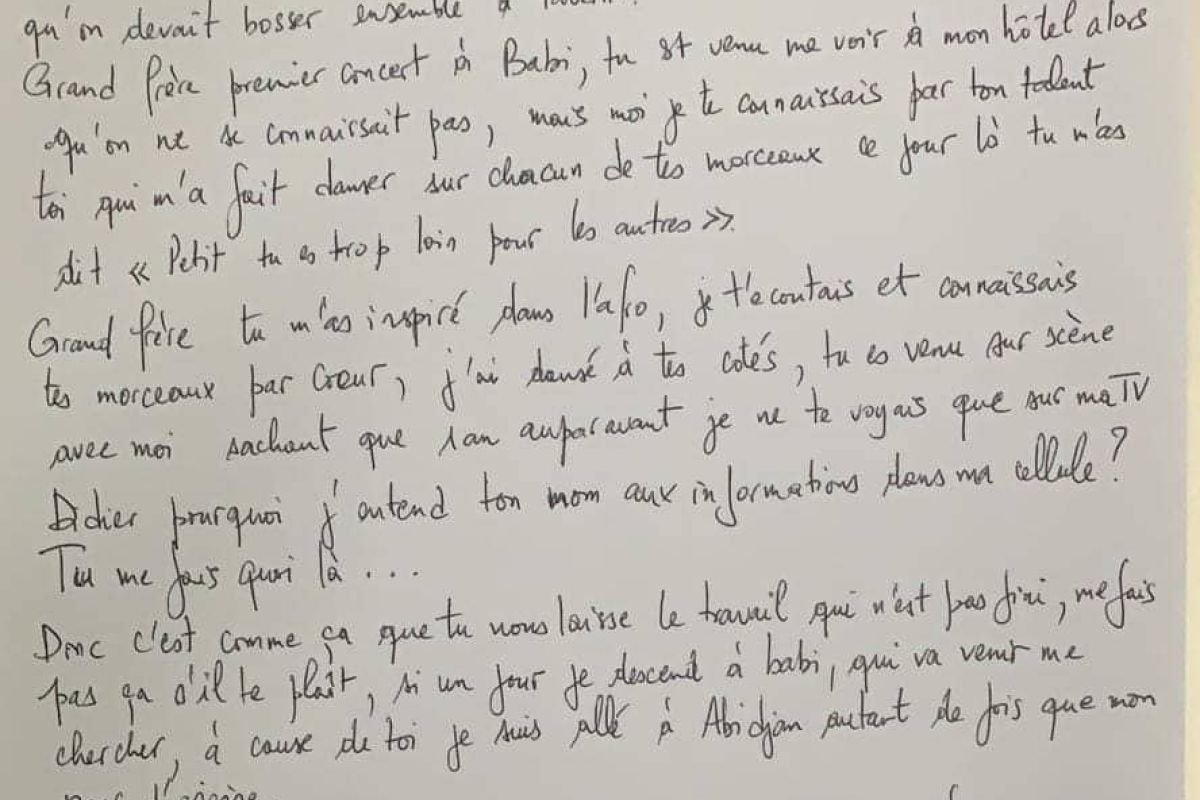 qu'on devait bosser ensemble à
Grand frère premier concert à Babi, tu st venu me voir à mon hôtel alors
qu'on ne se connaissait pas, mais moi je te connaissais par ton talent
toi qui m'a fait danser sur chacun de tes morceaux ce jour là tu m'as
dit « Petit tu es trop loin pour les autres ».
Grand frère tu m'as inspiré dans l'afro, je t'ecoutais et connaissais
tes morceaux par cœur, j'ai dansé à tes cotés, tu es venu sur scène
avec moi sachant que 1 an auparavant je ne te voyais que sur ma TV
Didier pourquoi j'entend ton nom aux informations dans ma cellule ?
Tu me fais quoi là ...
Donc c'est comme ça que tu nous laisse le travail qui n'est pas fini, me fais
pas ça s'il te plaît, si un jour je descend à babi, qui va venir me
chercher, à cause de toi je suis allé à Abidjan autant de fois que mon